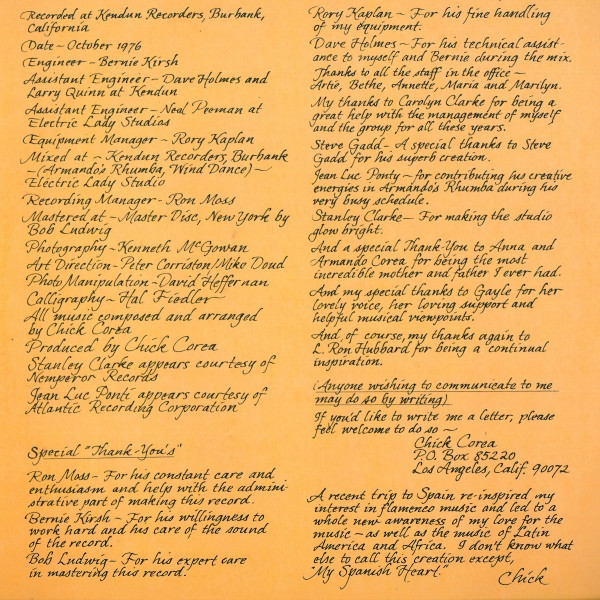 Recorded at Kendun Recorders, Burbank,
California
Date ~ October 1976
Engineer ~ Bernie Kirsh
Assistant Engineer ~ Dave Holmes and
Larry Quinn at Kendun
Assistant Engineer ~ Neal Peeman at
Electric Lady Studios
Equipment Manager ~ Rory Kaplan
Mixed at ~ Kendun Recorders, Burbank
~ (Armando's Rhumba, Wind Dance) ~
Electric Lady Studio
Recording Manager - Ron Moss
Mastered at ~ Master Disc, New York by
Bob Ludwig
Photography ~ Kenneth McGowan
Art Direction - Peter Corriston/Mike Doud
Photo Manipulation - David Heffernan
Calligraphy ~ Hal Fiedler
All music composed and arranged
by Chick Corea
Produced by Chick Corea
Stanley Clarke appears courtesy of
Nemperor Records
Jean Luc Ponti appears courtesy of
Atlantic Recording Corporation
Special "Thank-You's"
Ron Moss - For his constant care and
enthusiasm and help with the admini-
strative part of making this record.
Bernie Kirsh ~ For his willingness to
work hard and his care of the sound
of the record.
Bob Ludwig ~ For his expert care
in mastering this record.
Rory Kaplan ~ For his fine handling
of my equipment.
Dave Holmes ~ For his technical assist-
ance to myself and Bernie during the mix.
Thanks to all the staff in the office ~
Artie, Bethe, Annette, Maria and Marilyn.
My thanks to Carolyn Clarke for being a
great help with the management of myself
and the group for all these years.
Steve Gadd - A special thanks to Steve
Gadd for his superb creation.
Jean Luc Ponty ~ for contributing his creative
energies in Armando's Rhumba during his
very busy schedule.
Stanley Clarke ~ For making the studio
glow bright.
And a special Thank-You to Anna and
Armando Corea for being the most
incredible mother and father I ever had.
And my special thanks to Gayle for her
lovely voice, her loving support and
helpful musical viewpoints.
And, of course, my thanks again to
L. Ron Hubbard for being a continual
inspiration.
(Anyone wishing to communicate to me
may do so by writing)
If you'd like to write me a letter, please
feel welcome to do so ~
Chick Corea
P.O. Box 85220
Los Angeles, Calif. 90072
A recent trip to Spain re-inspired my
interest in flamenco music and led to a
whole new awareness of my love for the
music ~ as well as the music of Latin
America and Africa. I don't know what
else to call this creation except,
"My Spanish Heart."
Chick